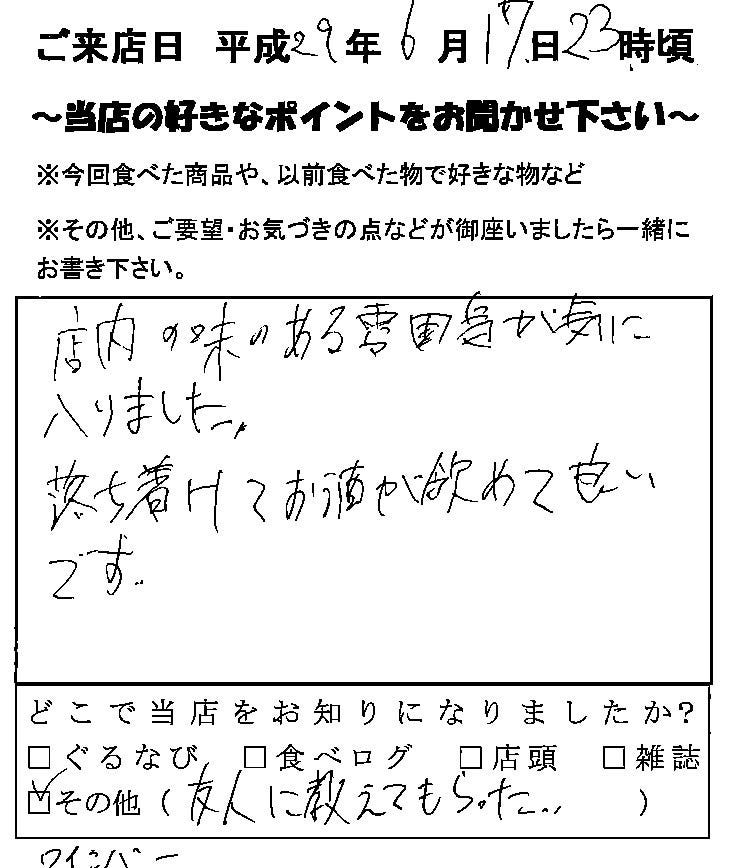 ご来店日 平成29年 6月 17日23時頃
～当店の好きなポイントをお聞かせ下さい～
※今回食べた商品や、以前食べた物で好きな物など
※その他、ご要望・お気づきの点などが御座いましたら一緒に
お書き下さい。
店内の味のある雰囲気が気に
入りました。
落ち着けてお酒が飲めて良い
です。
どこで当店をお知りになりましたか?
□ぐるなび □食べログ □店頭 □雑誌
☑その他（友人に教えてもらった... ）